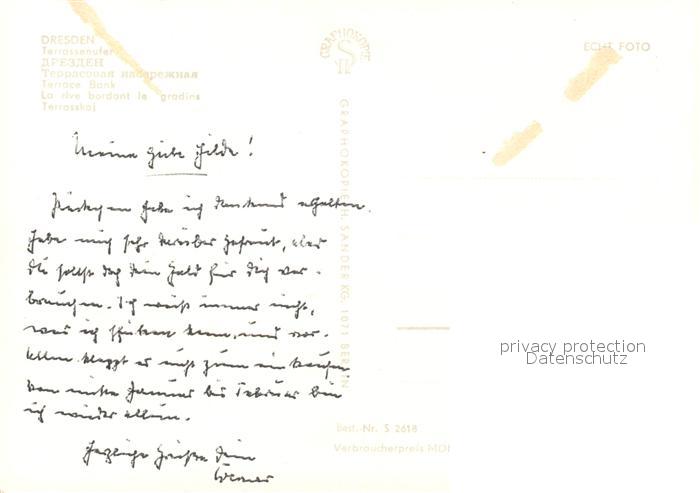 DRESDEN
Terrassenufer
ДРЕЗДЕН
Террасовая набережная
Terrace Bank
La rive bordant le gradins
Terrasskaj
GRAPHOKOPIE
H
ECHT FOTO
GRAPHOKOPIE H. SANDER KG, 1071 BERLIN
Meine liebe Hilde!
Päckchen habe ich dankend erhalten.
Habe mich sehr darüber gefreut, aber
Du sollst doch dein Geld für dich ver-
brauchen. Ich weiß immer nicht,
was ich schicken kann, und vor
allem klappt es nicht zum einkaufen
von mitte Januar bis Februar bin
ich wieder allein.
Herzliche Grüße dein
Werner
privacy protection
Datenschutz
Best.-Nr. S 2618
Verbraucherpreis MDN